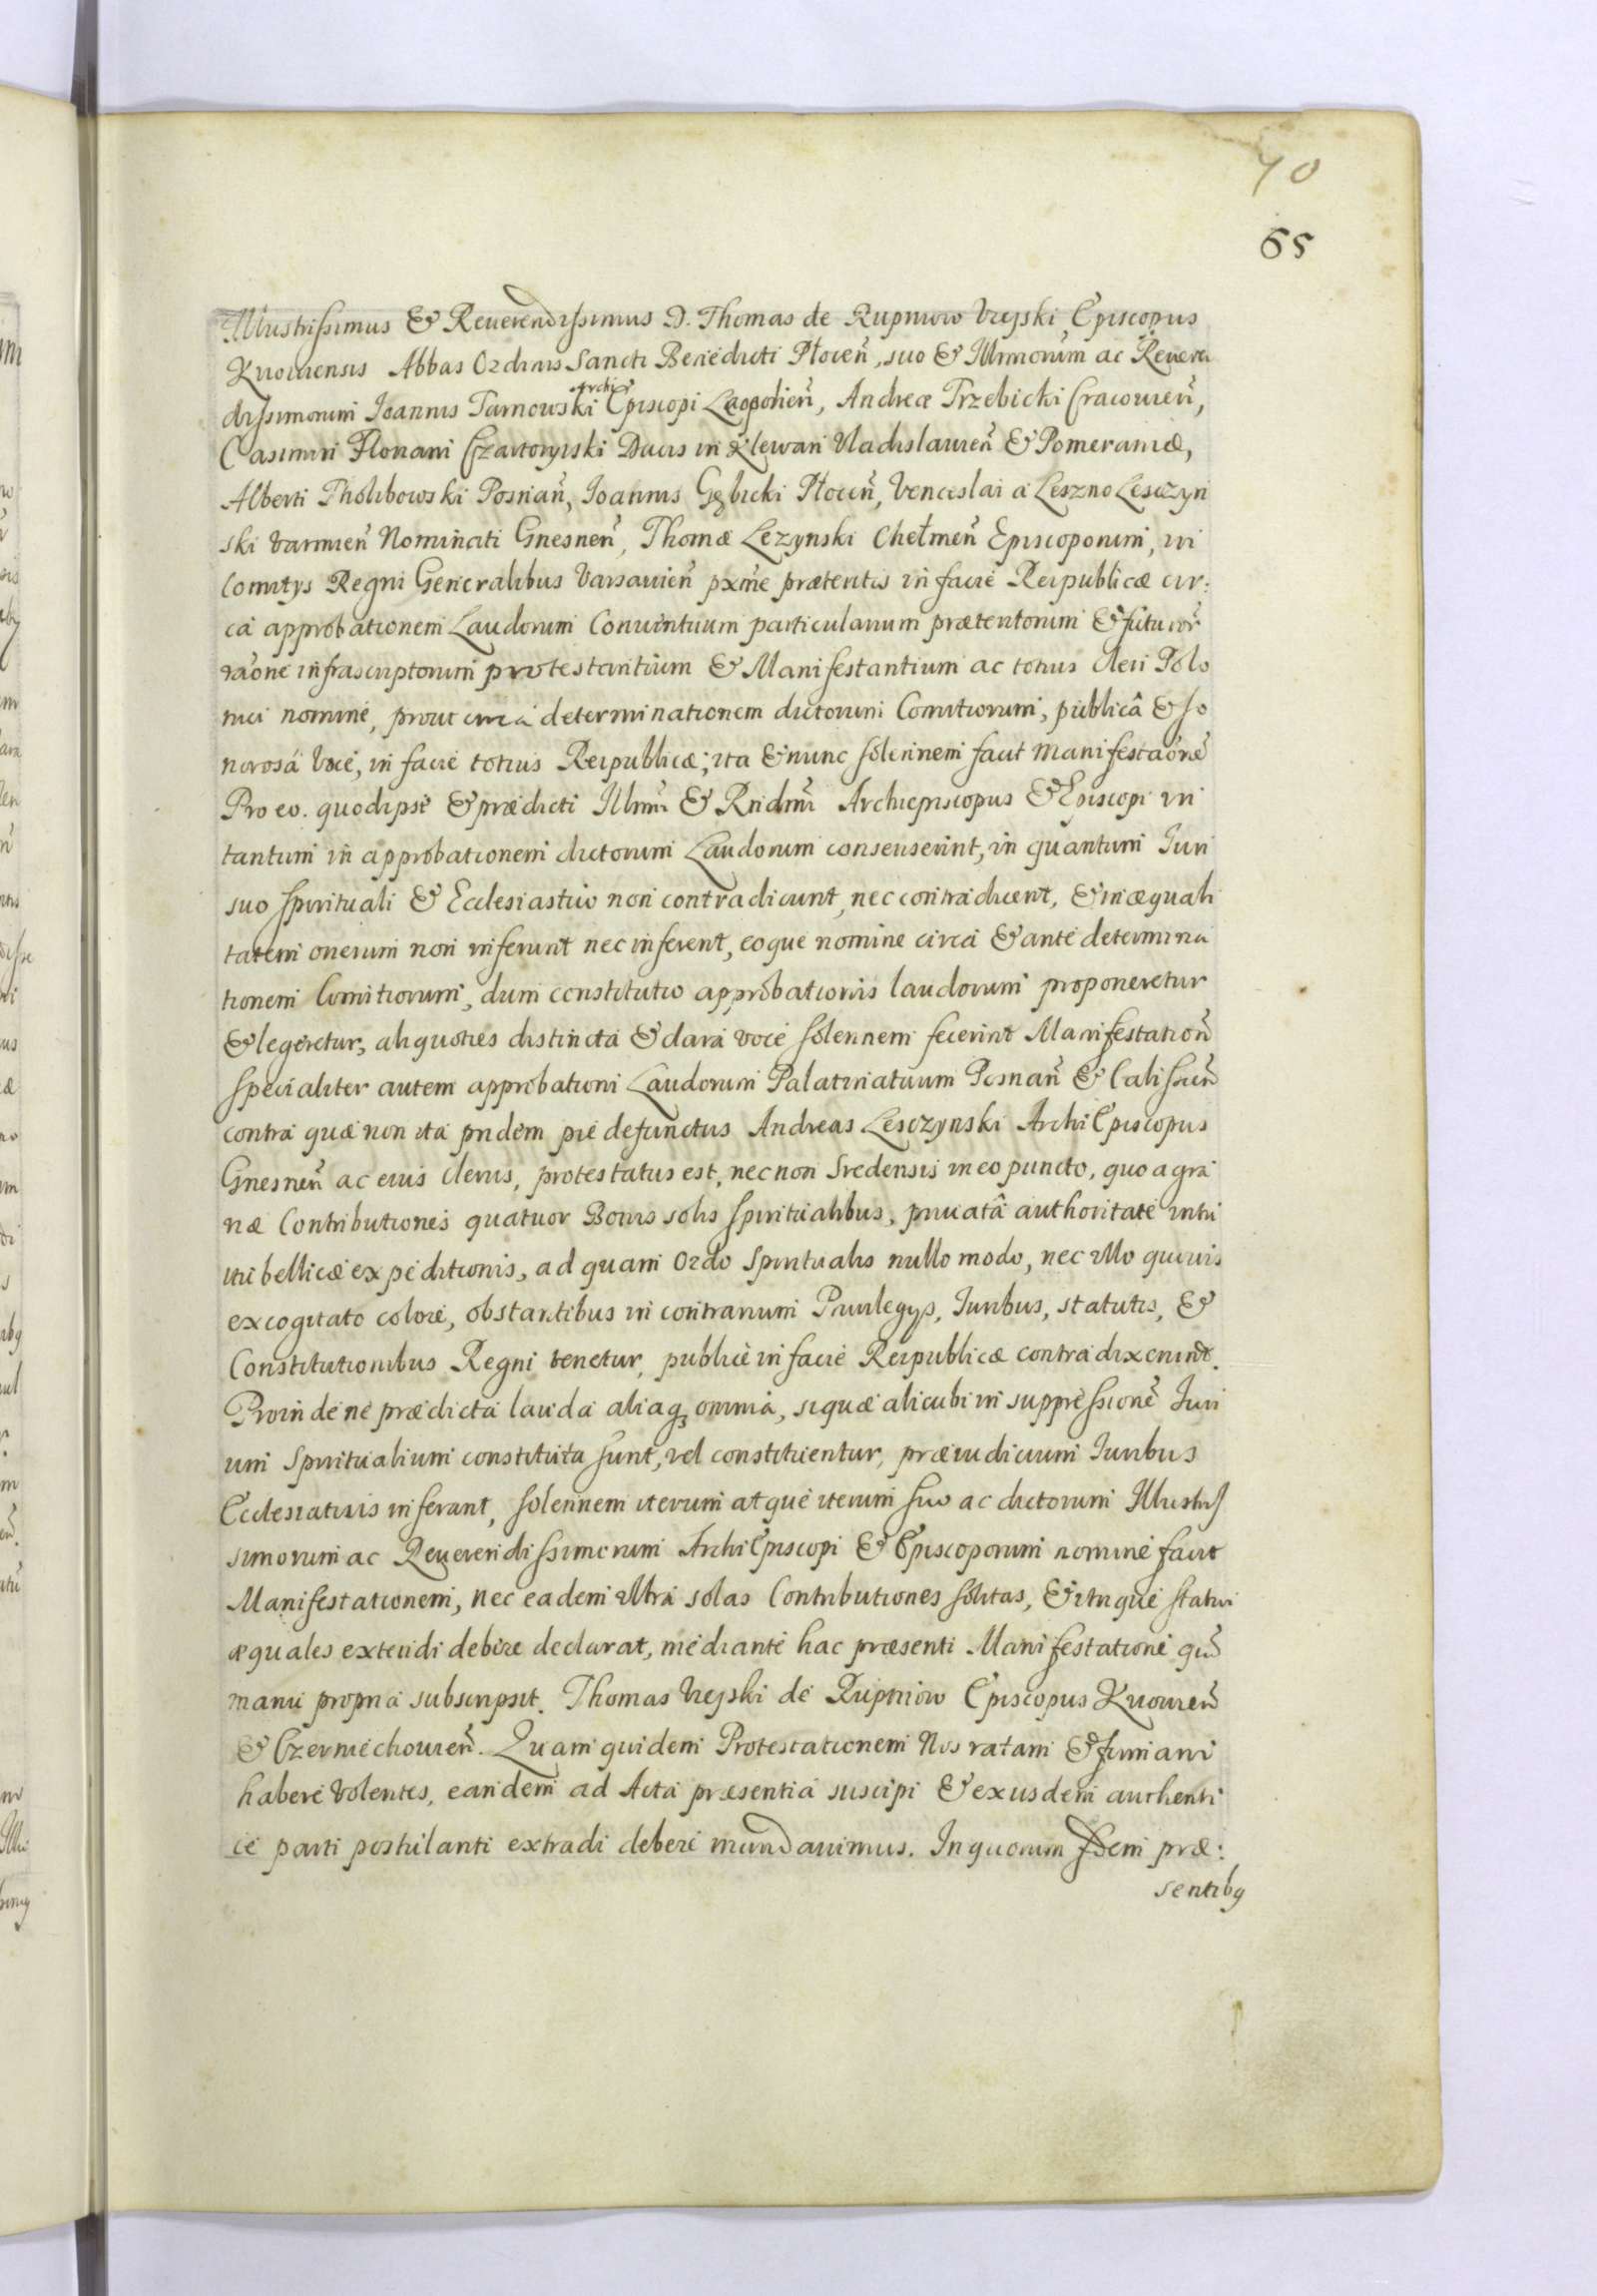 70
65
Illustrissimus & Reuerendissimus D. Thomas de Rupniow Vieyski Episcopus
Kiiouiensis Abbas Ordinis Sancti Benedicti Płoceñ, suo & Illmorum ac Reueren
dissimorum Ioannis Tarnowski Archi Episcopi Leopolień, Andreæ Trzebicki Cracouień,
Casimiri Floriani Czartoryiski Ducis in Klewan Vladislauień & Pomeraniæ,
Alberti Tholibowski Posnań, Ioannis Gębicki Płoceń, Venceslai à Leszno Lesczyn
ski Varmień Nominati Gnesneń, Thomæ Lezynski Chełmeń Episcoporum, in
Comitys Regni Generalibus Varsauień pxme prætentis in facie Reipublicæ cir:
ca approbationem Laudorum Conuentuum particularium prætentorum & futuror
raõne infrascriptorum protestantium & Manifestantium ac totius Cleri Polo
nici nomine, prout circa determinationem dictorum Comitiorum, publicâ & so
norosá voce, in facie totius Reipublicæ; ita & nunc solennem facit Manifestaõnẽ
Pro eo. quod ipse & prædicti Illmi & Rndmi Archiepiscopus & Episcopi in
tantum in approbationem dictorum Laudorum consenserint, in quantum Iuri
suo spirituali & Ecclesiastico non contradicunt, nec contradicent, & inæquali
tatem onerum non inferunt nec inferent, eoque nomine circa & ante determina
tionem Comitiorum, dum constitutio approbationis laudorum proponeretur
& legeretur, aliquoties distincta & clara voce solennem fecerint Manifestationẽ
specialiter autem approbationi Laudorum Palatinatuum Posnań & Calissień
contra quæ non ita pridem pie defunctus Andreas Lesczynski ArchiEpiscopus
Gnesneń ac eius Clerus, protestatus est, nec non Sredensis in eo puncto, quo agra
riæ Contributiones quatuor Bonis solis spiritualibus, priuatâ authoritate intu
itu bellicæ expeditionis, ad quam Ordo Spiritualis nullo modo, nec ullo quouis
excogitato colore, obstantibus in contrarium Priuilegys, Iuribus, statutis, &
Constitutionibus Regni tenetur, publice in facie Reipublicæ contradixerint.
Proinde ne prædicta lauda aliaq; omnia, si quæ alicubi in suppressionẽ Iuri
um Spiritualium constituta sunt, vel constituentur, præiudicium Iuribus
Ecclesiaticis inferant, solennem iterum atque iterum suo ac dictorum Illustris
simorum ac Reuerendissimorum ArchiEpiscopi & Episcoporum nomine facit
Manifestationem, nec eadem ultra solas Contributiones solitas, & utrique statui
æquales extendi debere declarat, mediante hac præsenti Manifestatione quã
manu propria subscripsit. Thomas Vieyski de Rupniow Episcopus Kiiouień
& Czerniechouień. Quam quidem Protestationem Nos ratam & firmam
habere volentes, eandem ad Acta præsentia suscipi & ex usdem authenti
ce parti postulanti extradi debere mandauimus. In quorum fidem præ:
sentibq